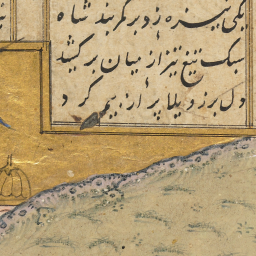 یکی نیزه زد بر کمربند شاه
سبک تیغ تیز از میان برکشید
دل برزویلا پر از بیم کرد